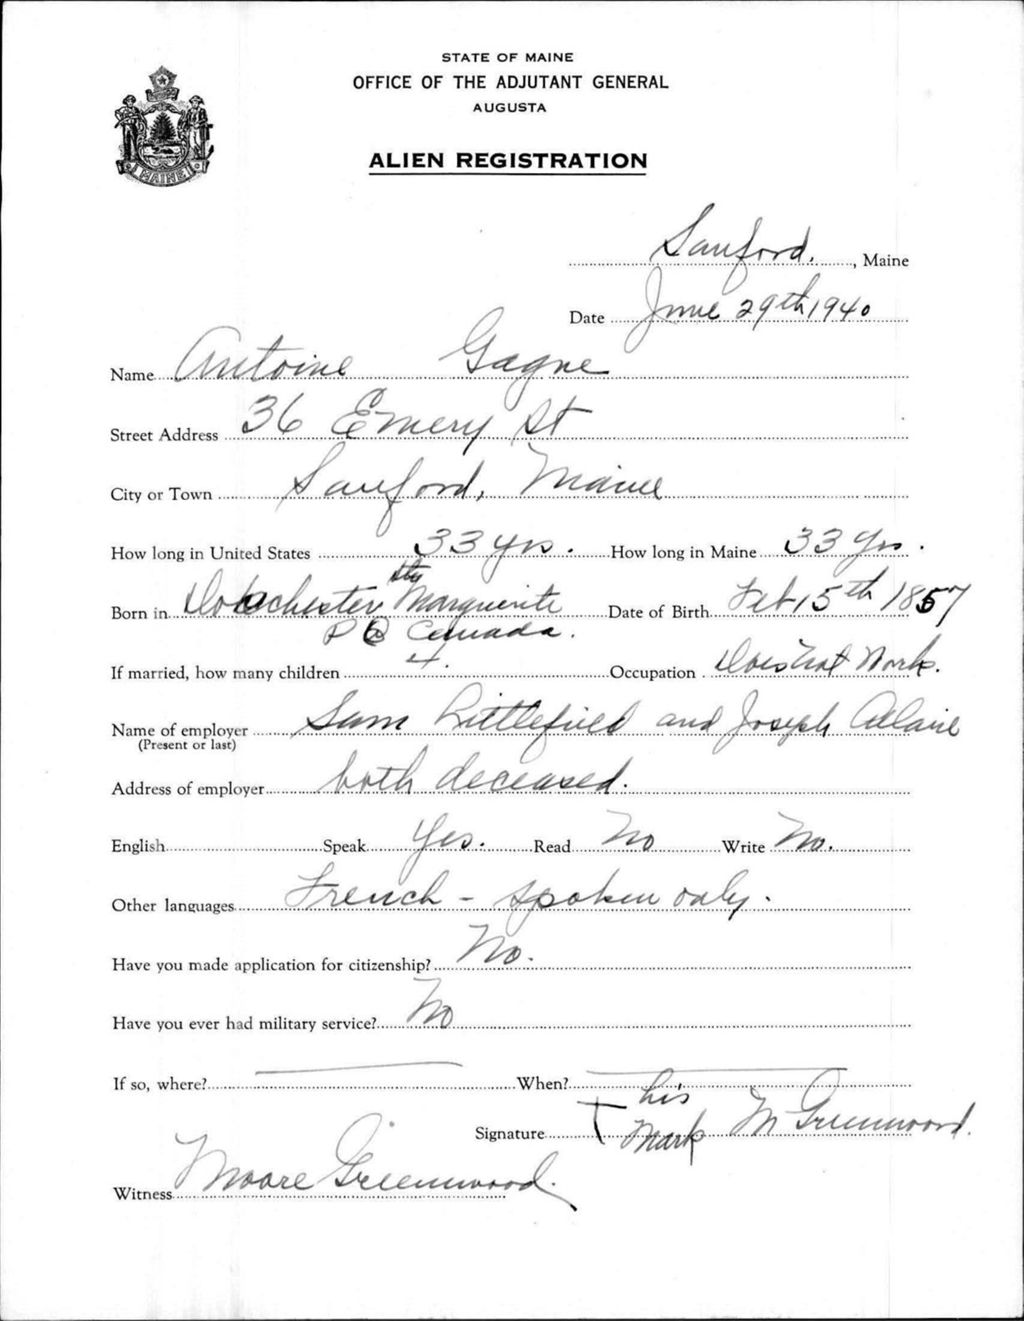 STATE OF MAINE
OFFICE OF THE ADJUTANT GENERAL
AUGUSTA
ALIEN REGISTRATION
MAINE
Sanford, Maine
Date June 29th, 1940
Name Antoine Gagne
Street Address 36 Emery St
City or Town Sanford, Maine
How long in United States 33 yrs. How long in Maine 33 yrs.
Born in Dorchester, Ste Marguerite Date of Birth Feb 15th 1857
P Q Canada.
If married, how many children 4. Occupation Does not Work.
Name of employer Sam Littlefield and Joseph Allaire
(Present or last)
Address of employer both deceased.
English Speak Yes. Read No Write No.
Other languages French - spoken only.
Have you made application for citizenship? No.
Have you ever had military service? No
If so, where? When?
his
Signature mark M Greenwood.
Witness Moore Greenwood.